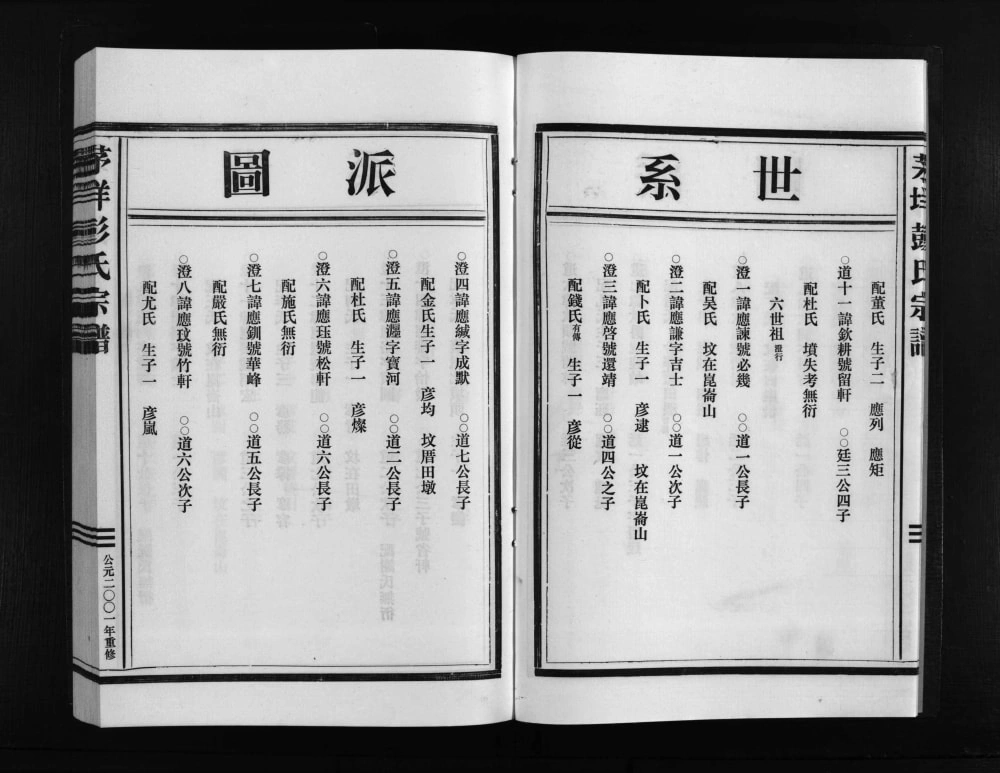 世系
配董氏 生子二 應列 應矩
○道十一諱欽耕號留軒 ○○廷三公四子
配杜氏 墳失考無衍
六世祖 澄行
○澄一諱應諫號必幾 ○○道一公長子
配吴氏 坟在崑崙山
○澄二諱應謙字吉士 ○○道一公次子
配卜氏 生子一 彦逮 坟在崑崙山
○澄三諱應啓號還靖 ○○道四公之子
配錢氏 有傳 生子一 彦從
派圖
○澄四諱應緘字成默 ○○道七公長子
配金氏生子一 彦均 坟厝田墩
○澄五諱應灑字寶河 ○○道二公長子
配杜氏 生子一 彦燦
○澄六諱應珏號松軒 ○○道六公長子
配施氏無衍
○澄七諱應釧號華峰 ○○道五公長子
配嚴氏無衍
○澄八諱應玟號竹軒 ○○道六公次子
配尤氏 生子一 彦嵐
彭氏宗譜
公元二○○一年重修